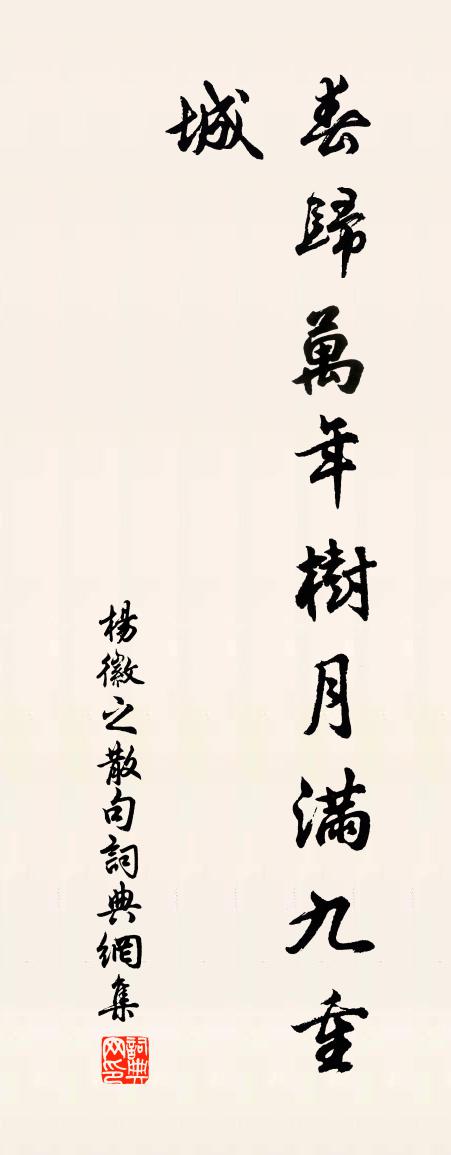 春歸萬年樹月滿九重
城
楊徽之散句詞典網集
詞典网印